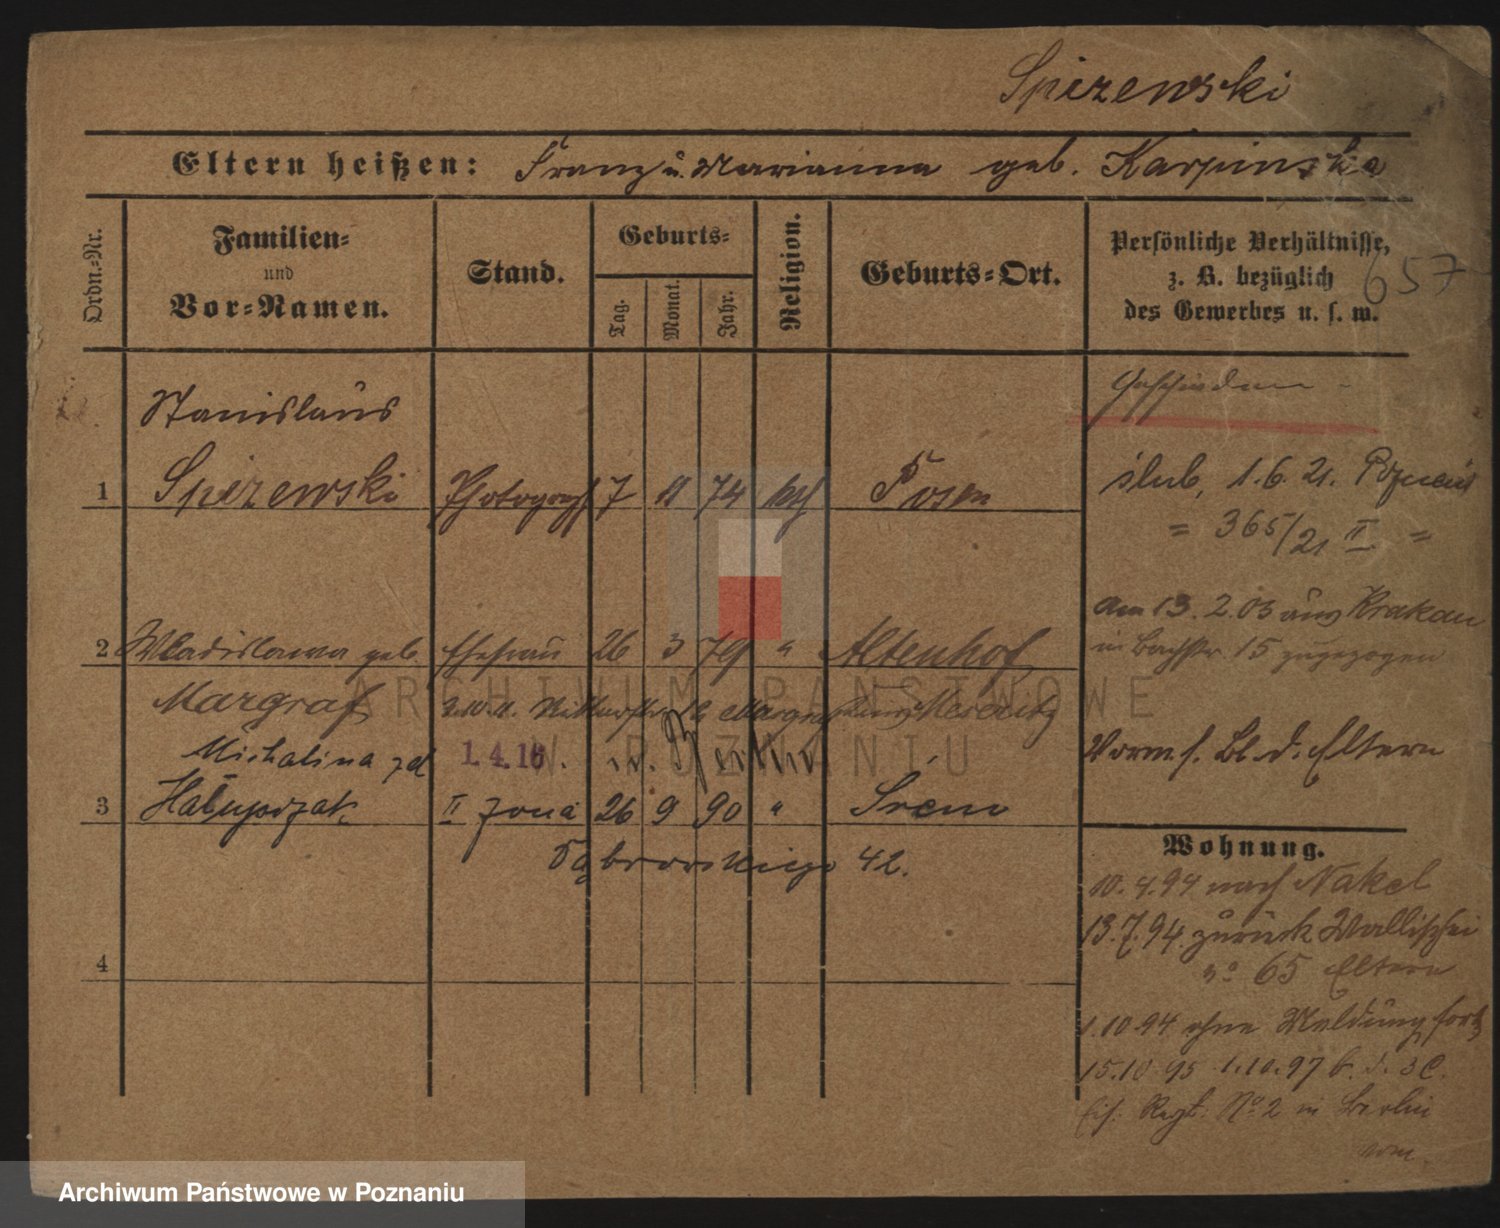 Spizewski
Eltern heißen: Franz u. Marianna geb. Karpinska
Ordn.-Nr.
Familien-
und
Vor-Namen.
Stand.
Geburts-
Tag.
Monat.
Jahr.
Religion.
Geburts-Ort.
Persönliche Verhältnisse,
z. B. bezüglich
des Gewerbes u. s. w.
657
Geschieden
Stanislaus
1 Spizewski Photograph 7 11 74 kath Posen
ślub, 1.6.21. Poznań
= 365/21 II =
am 13.2.03 aus Krakau
in Bachstr. 15 zugezogen
2 Wladislawa geb. Ehefrau 26 3 79 " Altenhof
Margraf
Michalina zd 1.4.16. Berlin
Vorm. s. Bl. d. Eltern
3 Hałupczak II żona 26 9 90 " Śrem
Dąbrowskiego 42.
Wohnung.
10.4.94 nach Nakel
13.7.94 zurück Wallischei
no 65 Eltern
4
1.10.94 ohne Meldung fort
15.10.95 1.10.97 b. d. 3 C.
Eis. Regt. No 2 in Berlin
ARCHIWUM PAŃSTWOWE
W POZNANIU
Archiwum Państwowe w Poznaniu